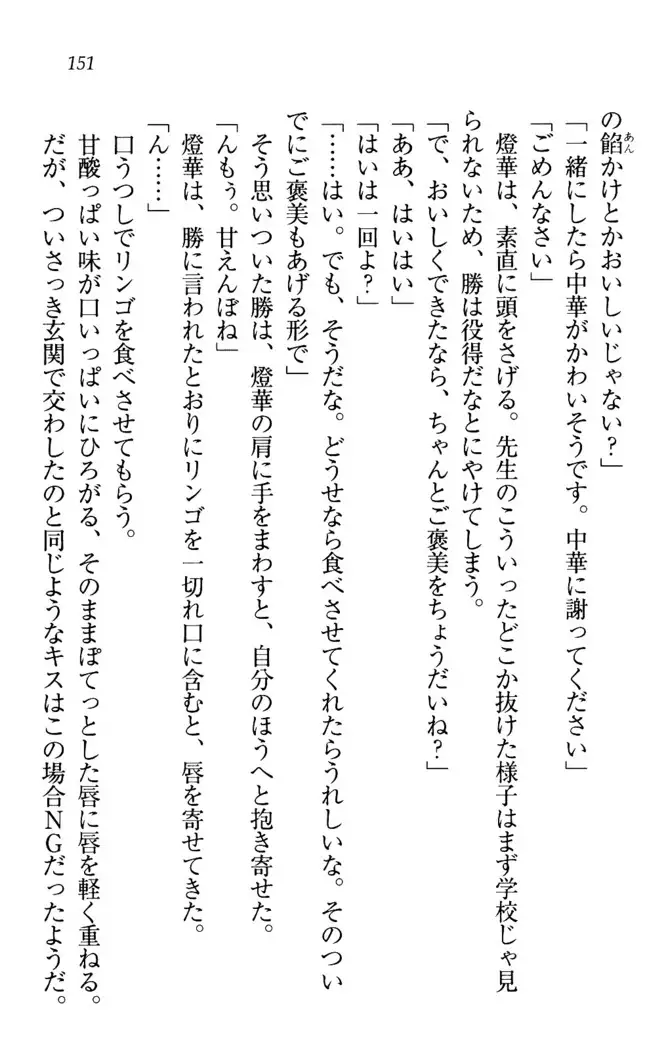 151
の餡かけとかおいしいじゃない？」
「一緒にしたら中華がかわいそうです。中華に謝ってください」
「ごめんなさい」
燈華は、素直に頭をさげる。先生のこういったどこか抜けた様子はまず学校じゃ見
られないため、勝は役得だなとにやけてしまう。
「で、おいしくできたなら、ちゃんとご褒美をちょうだいね？」
「ああ、はいはい」
「はいは一回よ？」
「……はい。でも、そうだな。どうせなら食べさせてくれたらうれしいな。そのつい
でにご褒美もあげる形で」
そう思いついた勝は、燈華の肩に手をまわすと、自分のほうへと抱き寄せた。
「んもぅ。甘えんぼね」
燈華は、勝に言われたとおりにリンゴを一切れ口に含むと、唇を寄せてきた。
「ん……」
口うつしでリンゴを食べさせてもらう。
甘酸っぱい味が口いっぱいにひろがる、そのままぽてっとした唇に唇を軽く重ねる。
だが、ついさっき玄関で交わしたのと同じようなキスはこの場合NGだったようだ。